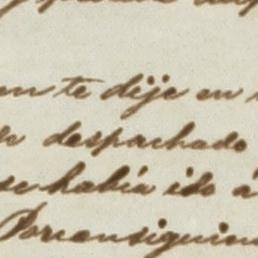 te dije en
despachado
se había ido á
Porconsiguien